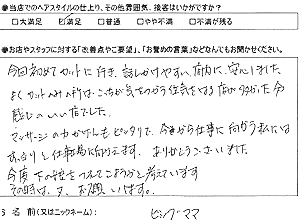 ●当店でのヘアスタイルの仕上り、その他雰囲気、接客はいかがですか？
□大満足 ☑満足 □普通 □やや不満 □不満が残る
●お店やスタッフに対する「改善点やご要望」、「お誉めの言葉」などなんでもお聞かせください。
今回初めてカットに行き、話しかけやすい店内に、安心しました。
よくカットのみの所は、こちらが気をつかう位気をなる店が多かった分
感じのいい店でした。
マッサージの力かげんもピッタリで、今から仕事に向かう私には
すっきりと仕事場に向かえます。ありがとうございました。
今度下の娘をつれてこようかと考えています
その時は、又、お願いします。
5 名 前(又はニックネーム)： ビッグママ